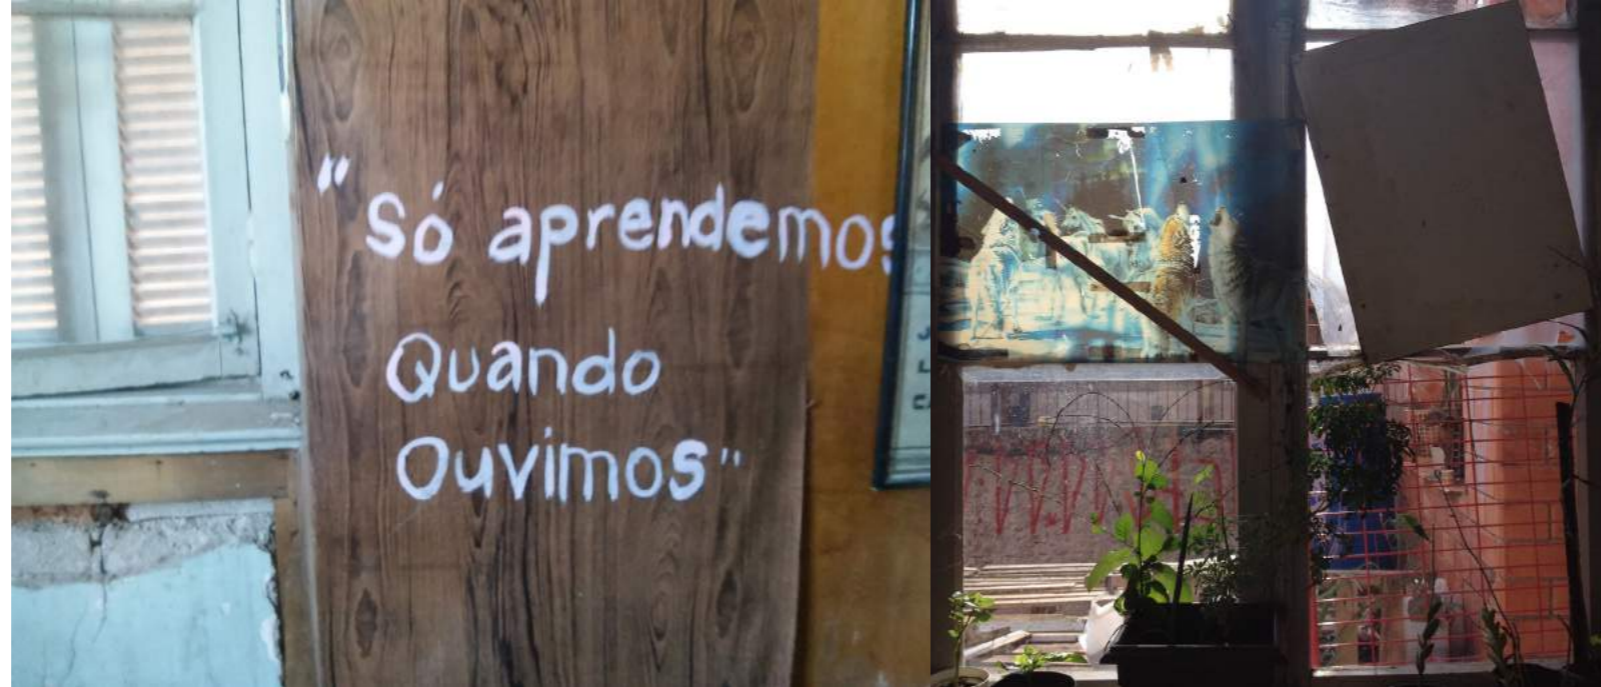 "Só aprendemos
Quando
Ouvimos"